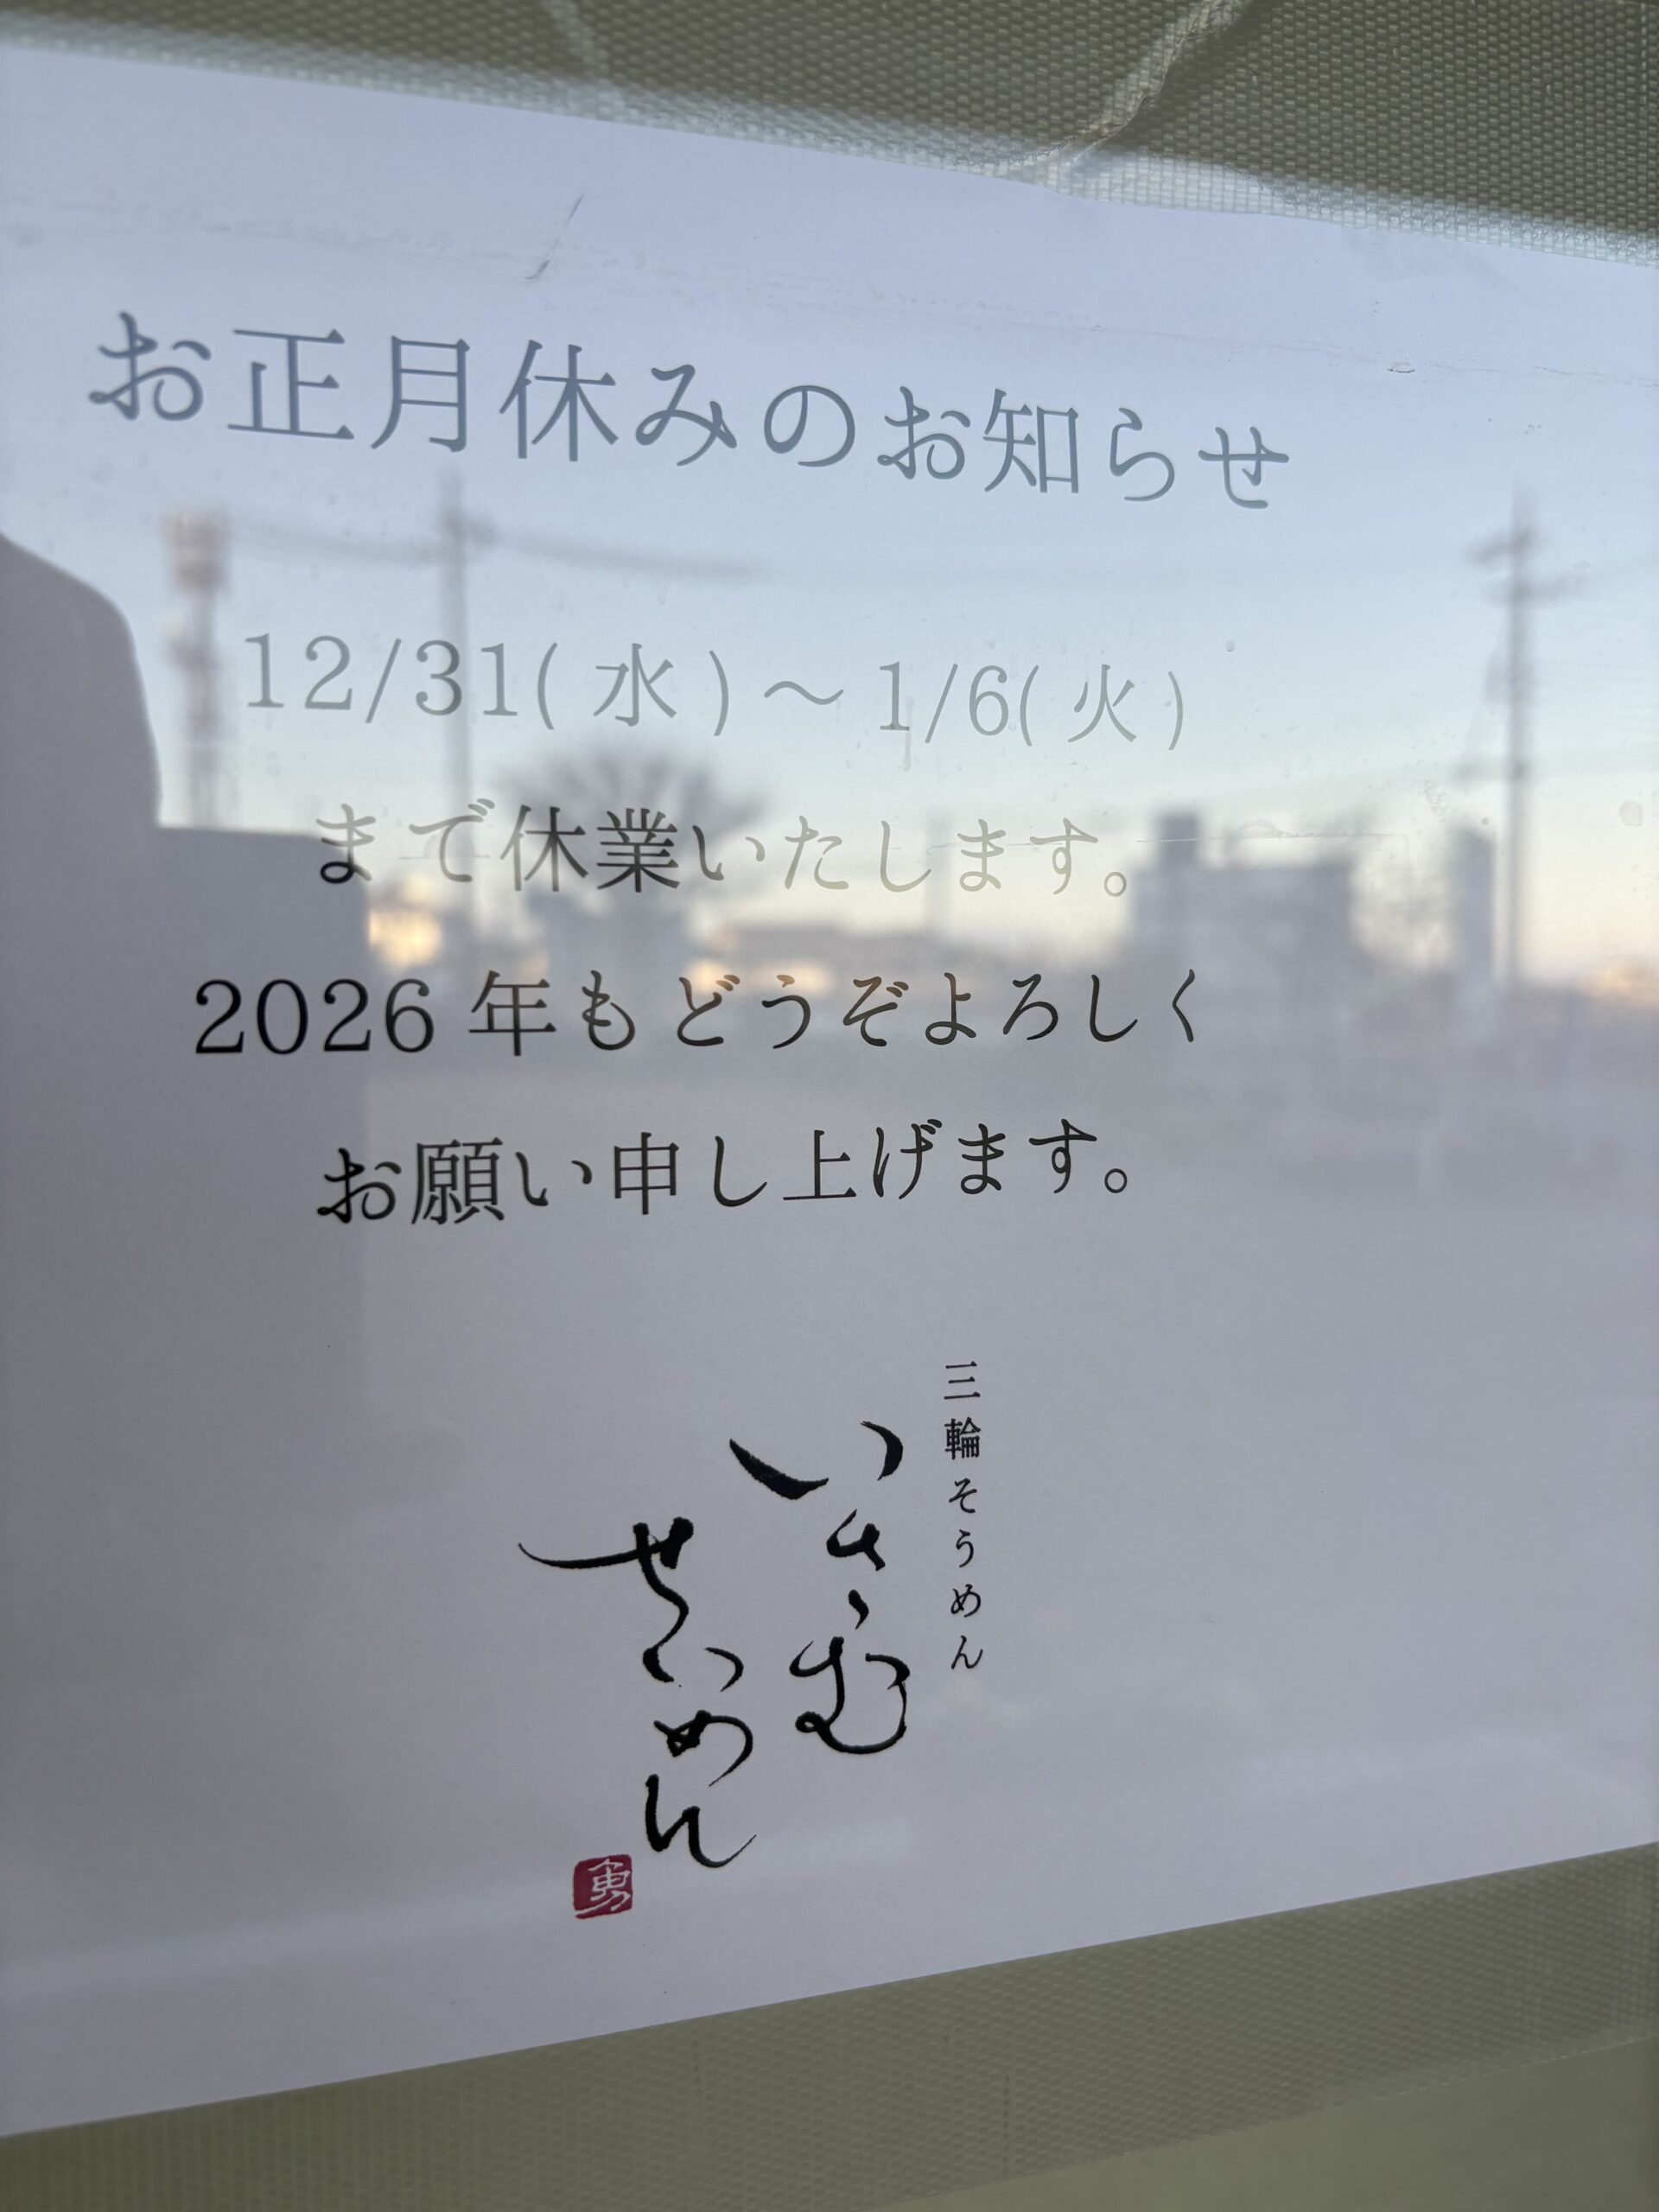 お正月休みのお知らせ
12/31(水)～1/6(火)
まで休業いたします。
2026年もどうぞよろしく
お願い申し上げます。
三輪そうめん
いさむ
せいめん
勇